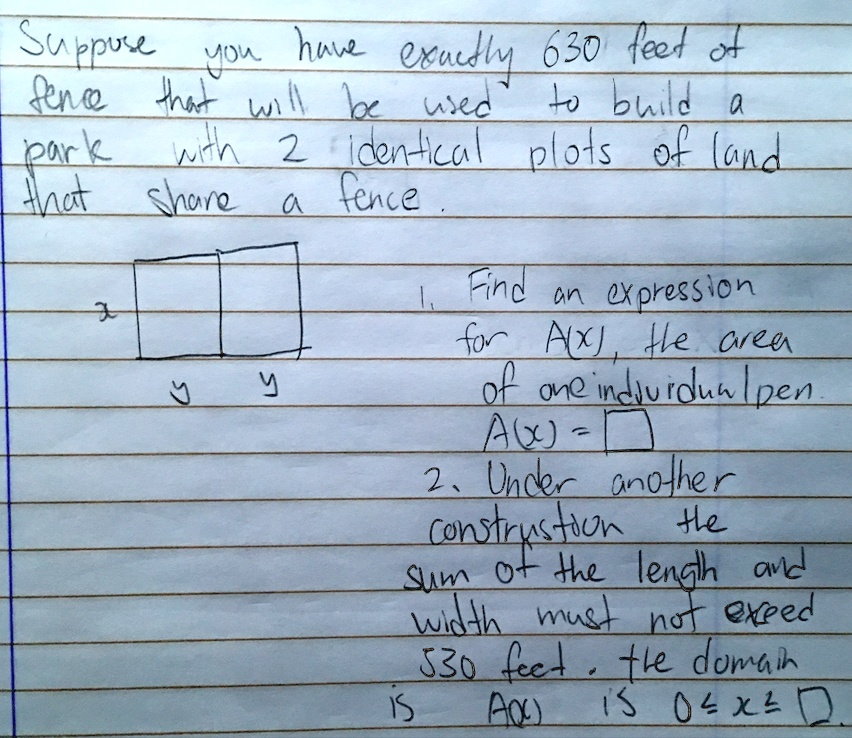 Suppose you have exactly 630 feet of
fence that will be used to build a
park with 2 identical plots of land
that share a fence.
x
y y
1. Find an expression
for A(x), the area
of one individual pen.
A(x) = □
2. Under another
construstion the
sum of the length and
width must not exeed
530 feet. the domain
is A(x) is 0 ≤ x ≤ □.